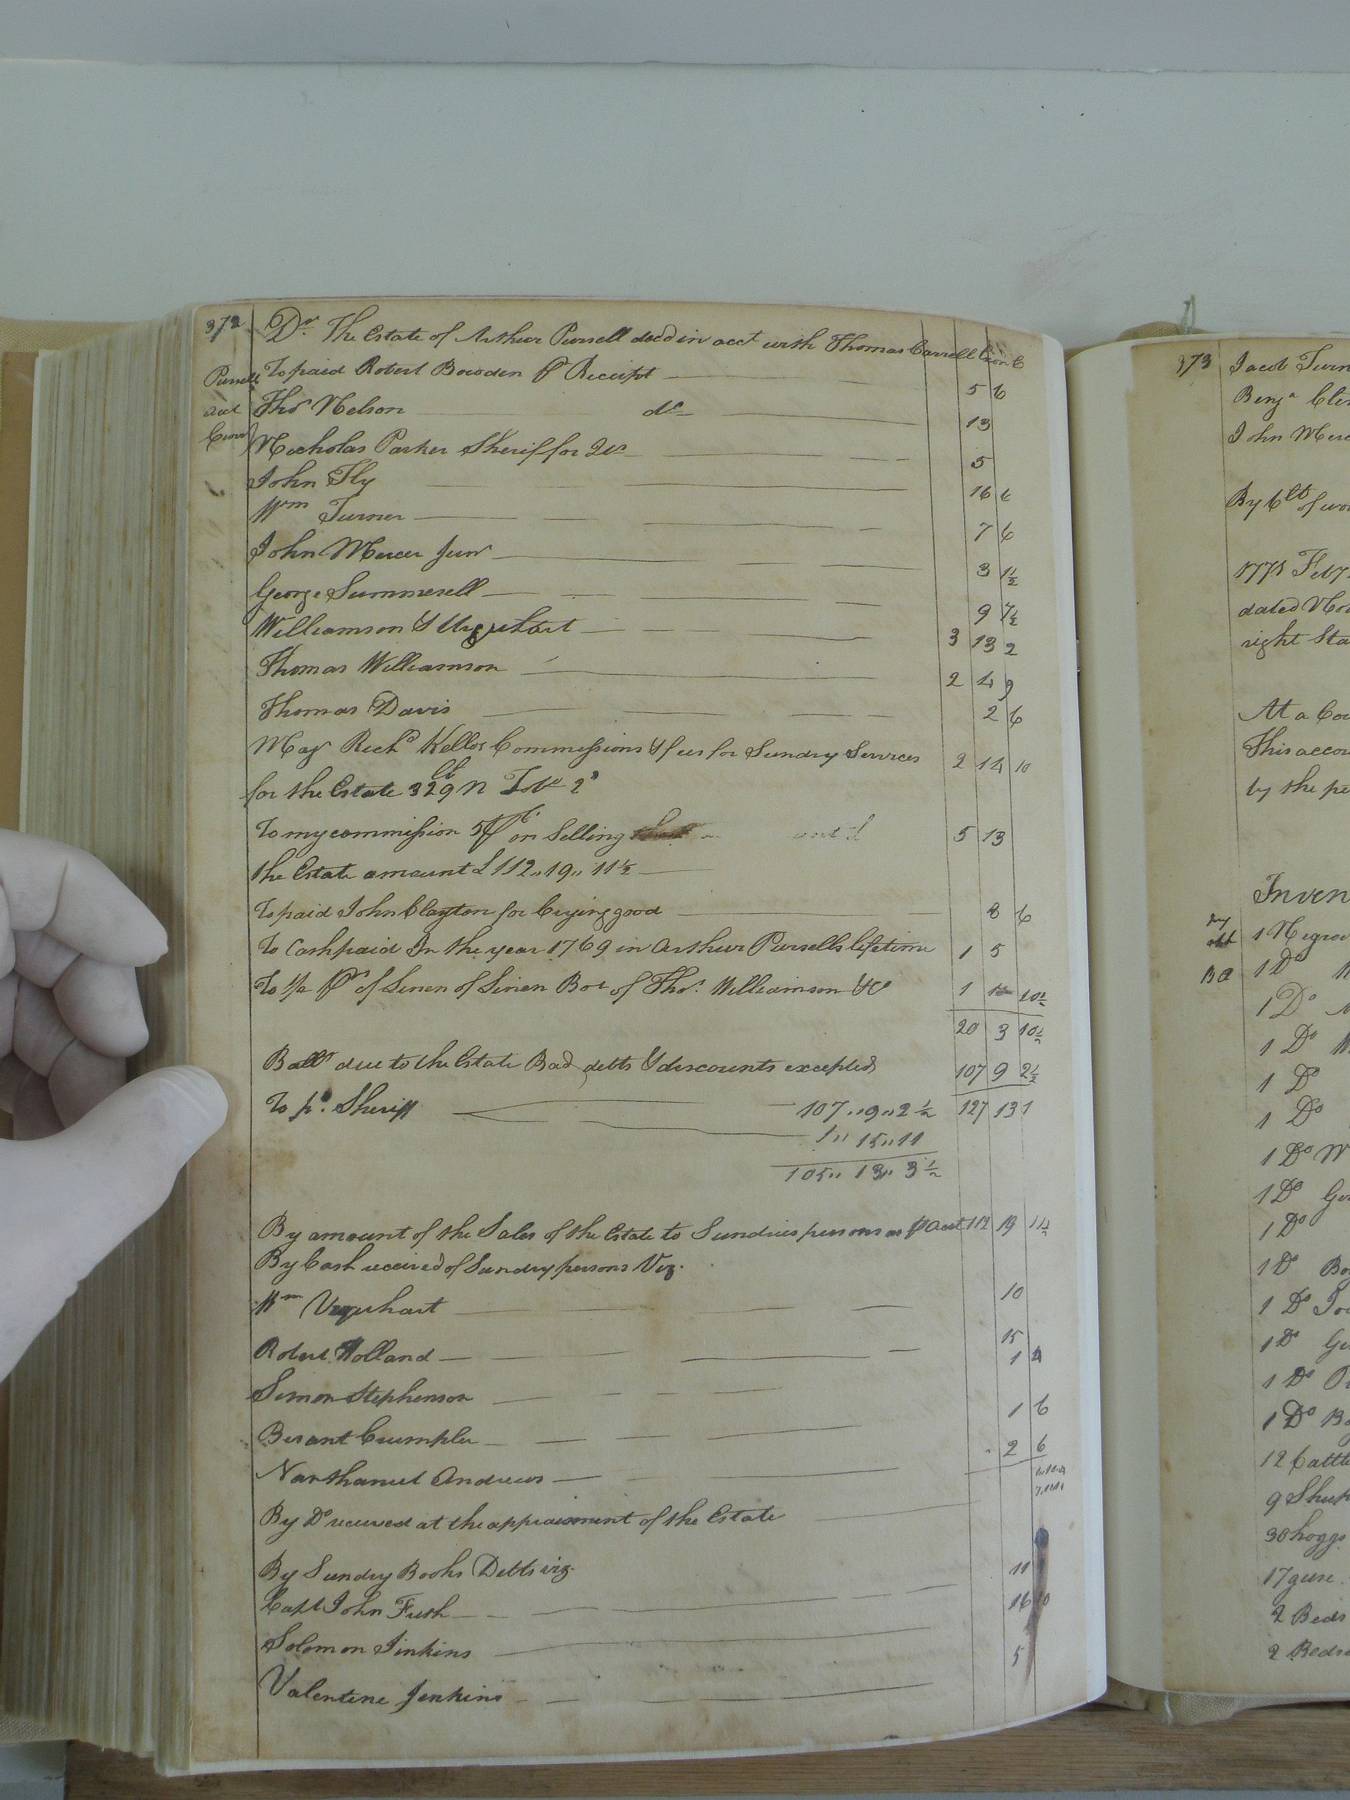 372
Dr. The Estate of Arthur Pursell decd in acct with Thomas Carrell
Pursell
acct
To paid Robert Bowden pr Receipt 5 6
Thos Nelson do 13
Nicholas Parker Sheriff for 5
John Fly 16 6
Wm Turner 7 6
John Mercer Junr 3 1½
George Summerell 9 7½
Williamson & Urquhart 3 13 2
Thomas Williamson 2 14 9
Thomas Davis 2 6
May Richd Kello Commissions & fees for Sundry Services 2 14 10
for the Estate 329 lb N Tobo 2d
To my commission 5 pr Ct on Selling 5 13
the Estate amount £112,, 19,, 11½
To paid John Clayton for Crying good 8 6
To Cash paid In the year 1769 in Arthur Pursells lifetime 1 5
To ½ ps of Linen of Linen Bot of Thos. Williamson &c 1 10½
20 3 10½
Balle due to the Estate Bad debts & discounts excepted 107 9 2½
To pd. Sheriff 107,, 9,, 2½ 127 13 1
1,, 15,, 11
105,, 13,, 3½
By amount of the Sales of the Estate to Sundries persons as pr acct 112 19 11½
By Cash received of Sundry persons Viz.
Wm Urquhart 10
Robert Holland 15
1 4
Simon Stephenson
1 6
Besant Crumpler 2 6
Narthaniel Andrews
By Do received at the appraisment of the Estate
By Sundry Books Debts viz. 11
Capt John Futh 16 10
Solomon Jinkins 5
Valentine Jenkins
373
Jacob Turn
Benja
John Merc
By
1775 Feby
dated
right Sta
At a Cou
This accou
by the pe
Inven
1 Negro
1 Do
1 Do
1 Do
1 Do
1 Do
1 Do W
1 Do Ge
1 Do
1 Do Bo
1 Do
1 Do Ge
1 Do
1 Do Bo
12 Cattle
9 Sheep
30 hoggs
17 geese
2 Beds
2 Beds